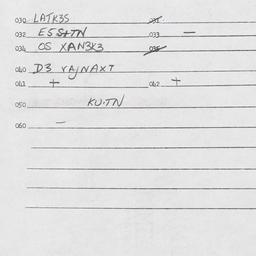 030 LATK3S 031
032 E5S+TN 033 —
034 OS XAN3K3 035
040 D3 VAJNAXT
041 + 042 +
050 KU·TN
060 —